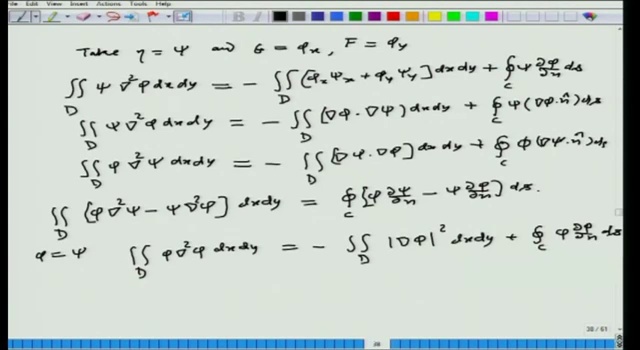 File Edit View Insert Actions Tools Help
Take η = ψ and G = φ_x, F = φ_y
∬_D ψ ∇²φ dxdy = - ∬_D [φ_x ψ_x + φ_y ψ_y] dxdy + ∮_C ψ ∂φ/∂n ds
∬_D ψ ∇²φ dxdy = - ∬_D (∇φ · ∇ψ) dxdy + ∮_C ψ (∇φ · n̂) ds
∬_D φ ∇²ψ dxdy = - ∬_D [∇ψ · ∇φ] dxdy + ∮_C φ (∇ψ · n̂) ds
∬_D [φ ∇²ψ - ψ ∇²φ] dxdy = ∮_C [φ ∂ψ/∂n - ψ ∂φ/∂n] ds.
φ = ψ ∬_D φ ∇²φ dxdy = - ∬_D |∇φ|² dxdy + ∮_C φ ∂φ/∂n ds
38 / 61
38